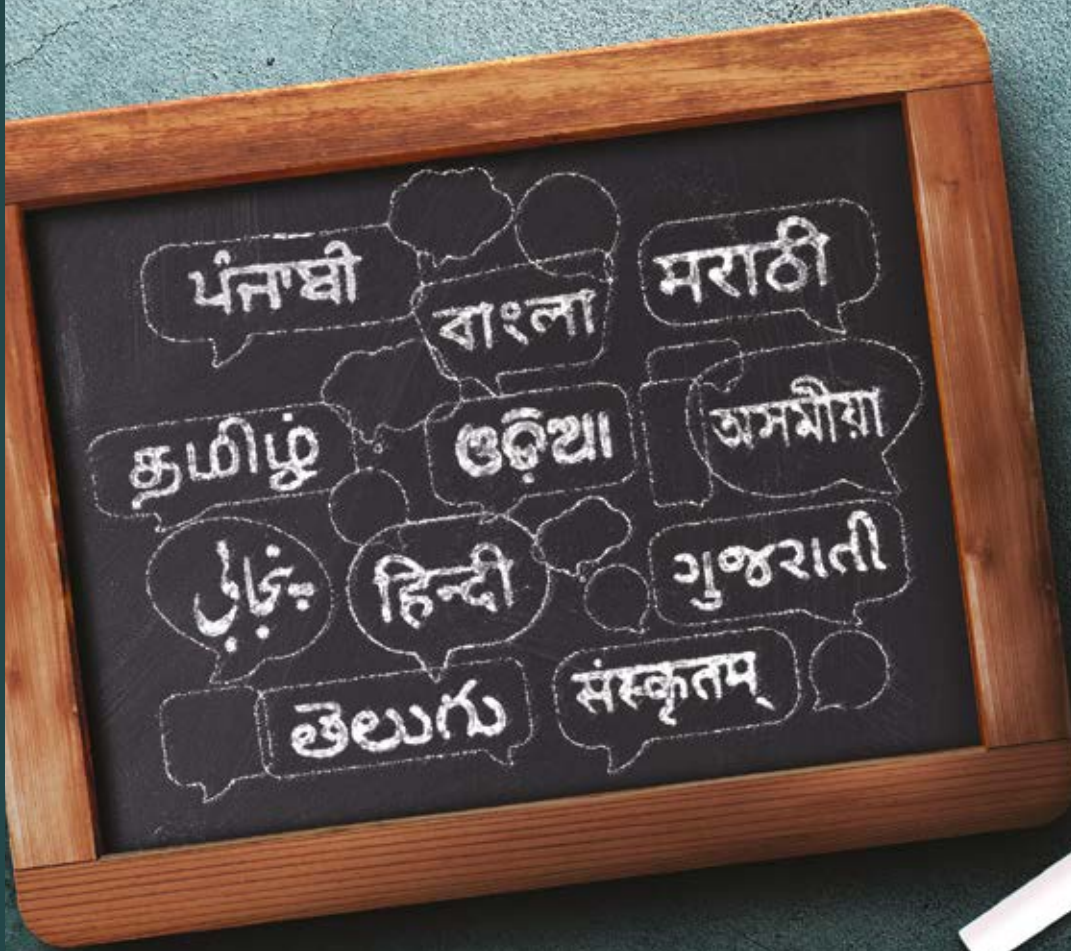 ਪੰਜਾਬੀ
বাংলা
मराठी
தமிழ்
ଓଡ଼ିଆ
অসমীয়া
پنجابی
हिन्दी
ગુજરાતી
తెలుగు
संस्कृतम्